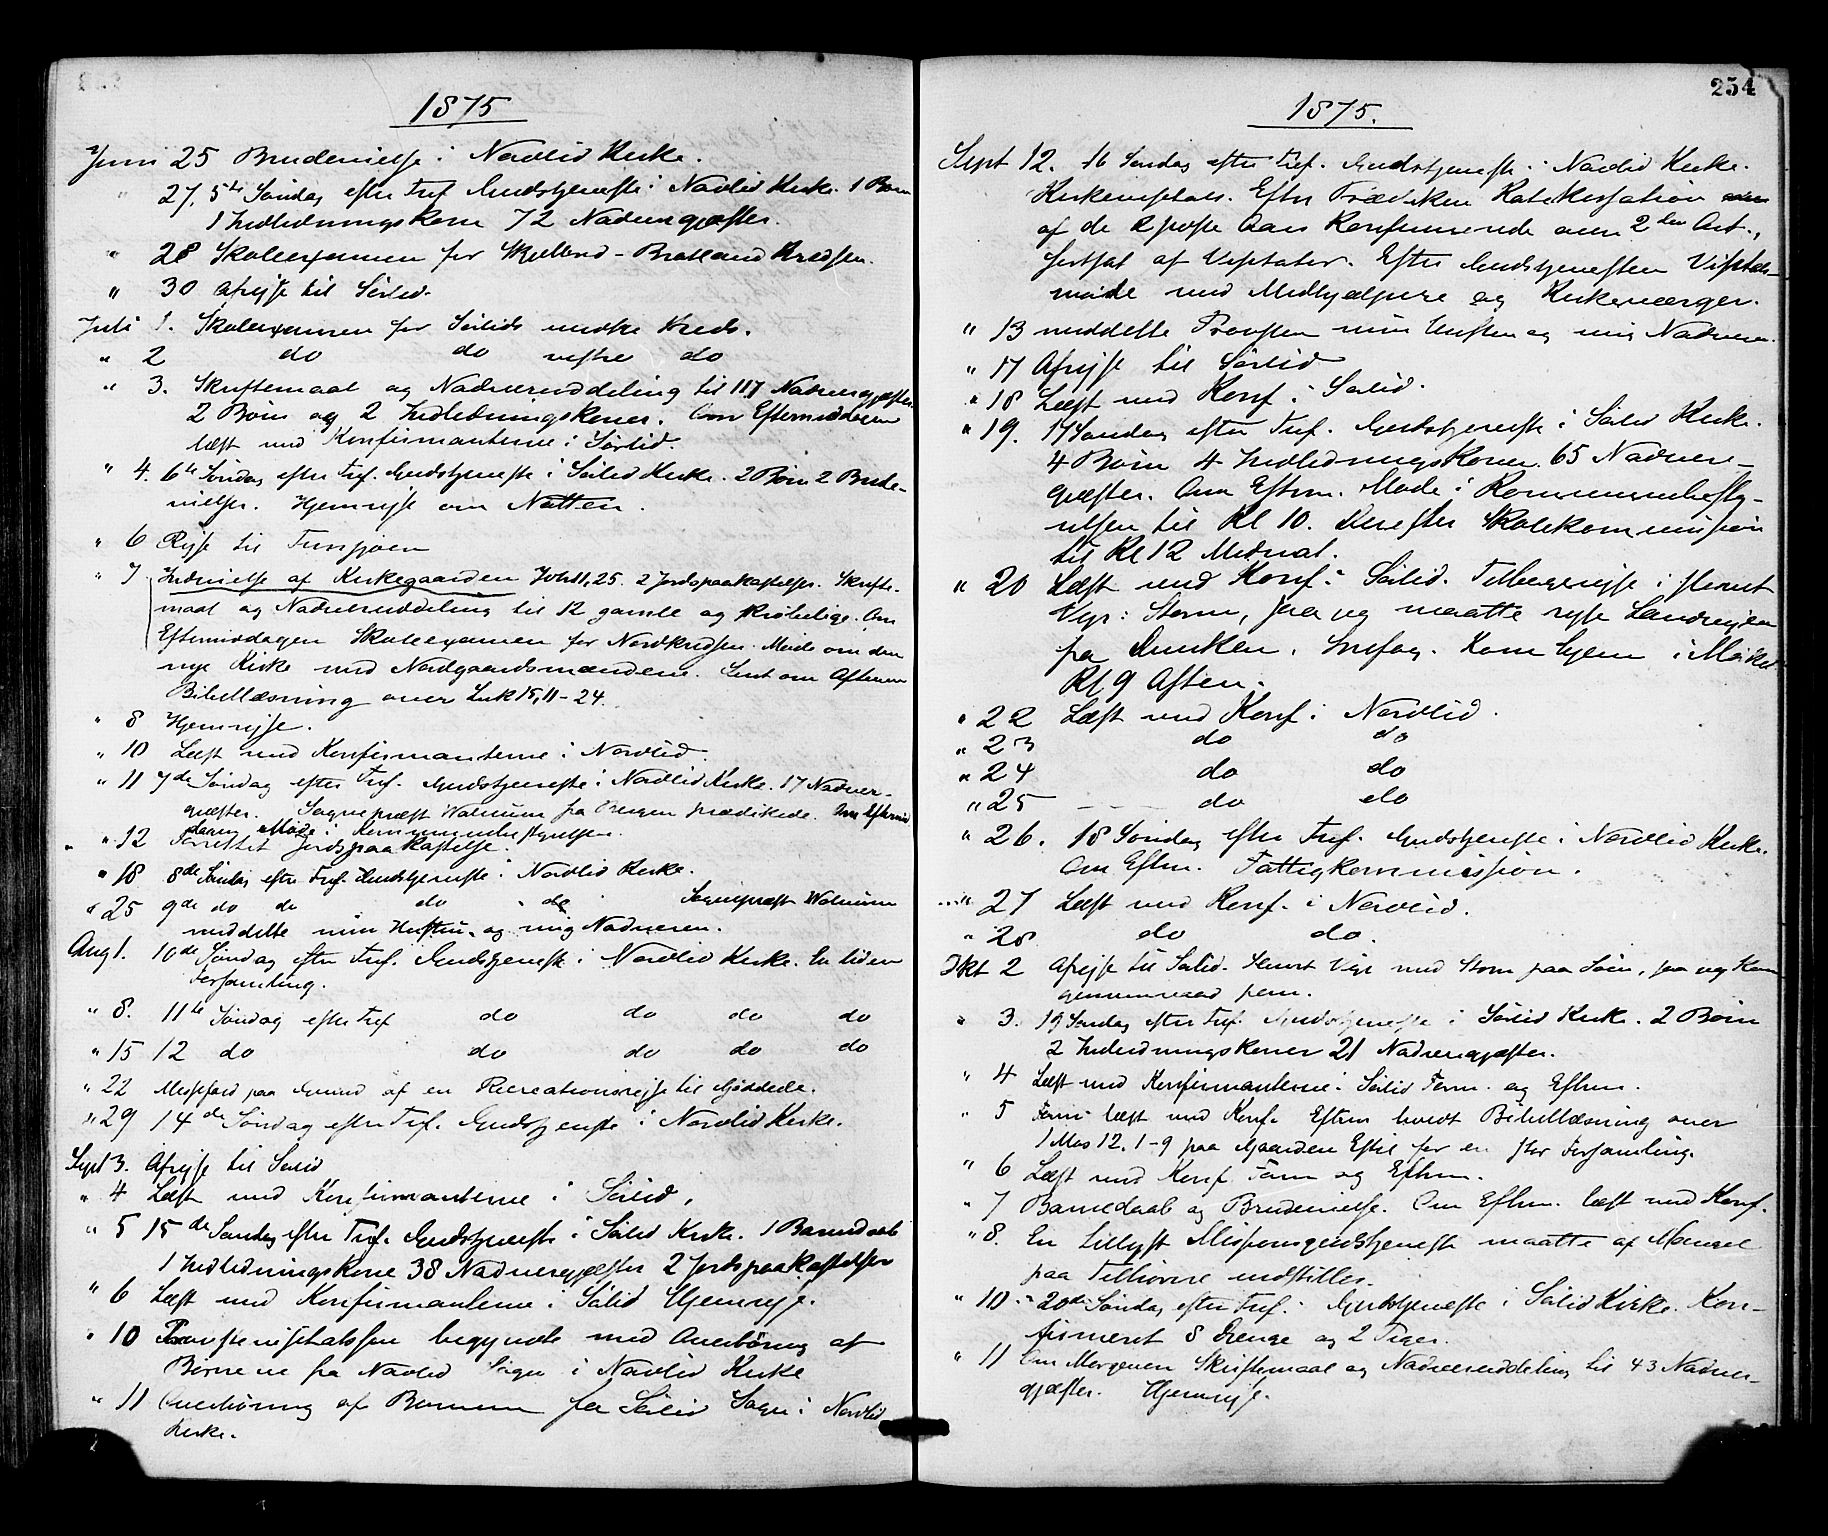 1875
Juni 25 Brudevielse i Nordlid Kirke.
" 27. 5te Søndag efter Tref. Gudstjeneste i Nordlid Kirke. 1 Barn
1 Indledningskone 72 Nadvergjæster.
" 28 Skoleexamen for Skjelbred - Bratland Kredsen.
" 30 Afrejse til Sørlid.
Juli 1. Skoleexamen for Sørlids nedre Kreds.
" 2 do do vestre do
" 3. Skriftemaal og Nadveruddeling til 117 Nadvergjæster.
2 Børn og 2 Indledningskoner. Om Eftermiddagen
læst med Konfirmanterne i Sørlid.
" 4. 6te Søndag efter Tref. Gudstjeneste i Sørlid Kirke. 2 Børn 2 Brude-
vielser. Hjemrejse om Natten.
" 6 Rejse til Tunsjøen
" 7 Indvielse af Kirkegaarden Joh 11,25. 2 Jordspaakastelser. Skrifte-
maal og Nadveruddeling til 12 gamle og skrøbelige. Om
Eftermiddagen Skoleexamen for Nordkredsen. Møde om den
nye Kirke med Nordgaardsmændene. Sent om Aftenen
Bibellæsning over Luk 15, 11-24.
" 8 Hjemrejse.
" 10 Læst med Konfirmanterne i Nordlid.
" 11 7de Søndag efter Tref. Gudstjeneste i Nordlid Kirke. 17 Nadver-
gjæster. Sognepræst Walnum fra prædikede. Om Eftermid
dagen Møde i Kommunebestyrelsen.
" 12 Forrettet Jordspaakastelse.
" 18 8de Søndag efter Tref. Gudstjeneste i Nordlid Kirke.
" 25 9de do do do " do Sognepræst Walnum
meddelte min Hustru og mig Nadveren.
Aug 1. 10de Søndag efter Tref. Gudstjeneste i Nordlid Kirke. En liden
Forsamling.
" 8. 11te Søndag efter Tref do do do do
" 15 12 do do do do do
" 22 Messefald paa Grund af en Recreationsrejse til Gjøddede.
" 29 14de Søndag efter Tref. Gudstjeneste i Nordlid Kirke.
Sept 3. Afrejse til Sørlid
" 4 Læst med Konfirmanterne i Sørlid.
" 5 15de Søndag efter Tref. Gudstjeneste i Sørlid Kirke. 1 Barnedaab
1 Indledningskone 38 Nadvergjæster 2 Jordspaakastelser
" 6 Læst med Konfirmanterne i Sørlid Hjemrejse.
" 10 Provstevisitatsen begyndte med Overhøring af
Børnene fra Nordlid Sogn i Nordlid Kirke
" 11 Overhøring af Børnene fra Sørlid Sogn i Nordlid
Kirke.
254
1875.
Sept 12. 16 Søndag efter Tref. Gudstjeneste i Nordlid Kirke.
Kirkevisitats. Efter Prædiken Katekisation
af de 2 sidste Aars Konfirmerede over 2den Art.,
fortsat af Visitator. Efter Gudstjenesten Visitats-
møde med Medhjælpere og Kirkeværger.
" 13 meddelte Provsten min Hustru og mig Nadveren.
" 17 Afrejse til Sørlid
" 18 Læst med Konf. i Sørlid.
" 19. 17 Søndag efter Tref. Gudstjeneste i Sørlid Kirke.
4 Børn 4 Indledningskoner. 65 Nadver-
gjæster. Om Efterm. Møde i Kommunebesty-
relsen til Kl 10. Derefter Skolekommission
til Kl 12 Midnat.
" 20 Læst med Konf. i Sørlid. Tilbagerejse i slemt
Vejr: Storm, saa jeg maatte rejse Landvejen
fra . Snefog. Kom hjem i Mørket
Kl 9 Aften.
" 22 Læst med Konf. i Nordlid.
" 23 do do
" 24 do do
" 25 do do
" 26. 18 Søndag efter Tref. Gudstjeneste i Nordlid Kirke.
Om Efterm. Fattigkommission.
" 27 Læst med Konf. i Nordlid.
" 28 do do.
Okt 2 Afrejse til Sørlid. Slemt Vejr med Storm paa Søen, saa jeg kom
gjennemvaad frem.
" 3. 19 Søndag efter Tref. Gudstjeneste i Sørlid Kirke. 2 Børn
2 Indledningskoner 21 Nadvergjæster.
" 4 Læst med Konfirmanterne i Sørlid Form. og Efterm.
" 5 Form. læst med Konf. Efterm holdt Bibellæsning over
1 Mos 12, 1-9 paa Gaarden Estil for en stor Forsamling.
" 6 Læst med Konf. Form og Efterm.
" 7 Barnedaab og Brudevielse. Om Efterm. læst med Konf.
" 8. En tillyst Missionsgudstjeneste maatte af Mangel
paa Tilhørere indstilles.
" 10. 20de Søndag efter Tref. Gudstjeneste i Sørlid Kirke. Kon-
firmeret 8 Drenge og 2 Piger.
" 11 Om Morgenen Skriftemaal og Nadveruddeling til 43 Nadver-
gjæster. Hjemrejse.